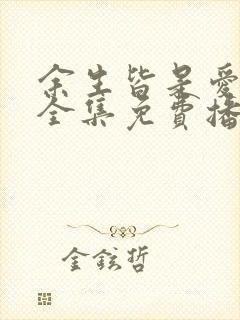 余生皆是愛
全集免費播
金鉉哲